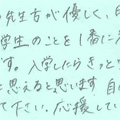 先生方が優しく、自
学生のことを一番に考
です。入学したらきっと
と思ると思います 自
て下さい。応援してい